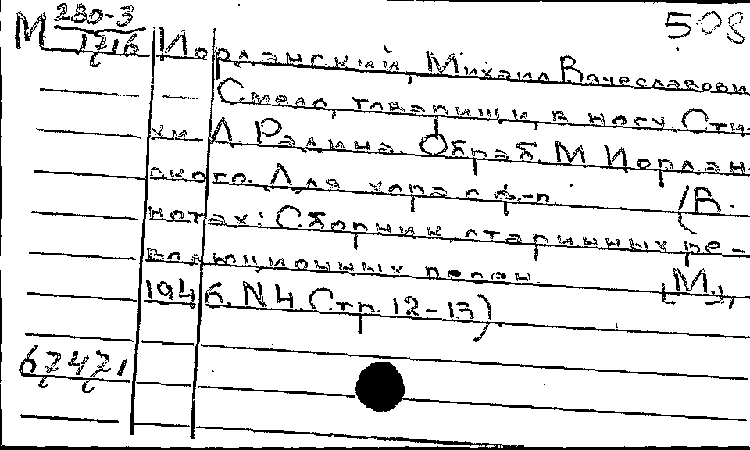 М 280-3
1716
508
Иорданский, Михаил Вячеславови
Смело, товарищи, в ногу. Сти-
хи Л. Радина. Обраб. М. Иордан-
ского. Для хора с ф-п (В
нотах: Сборник старинных ре-
волюционных песен. [М.],
1946. N 4. Стр. 12-13).
67471